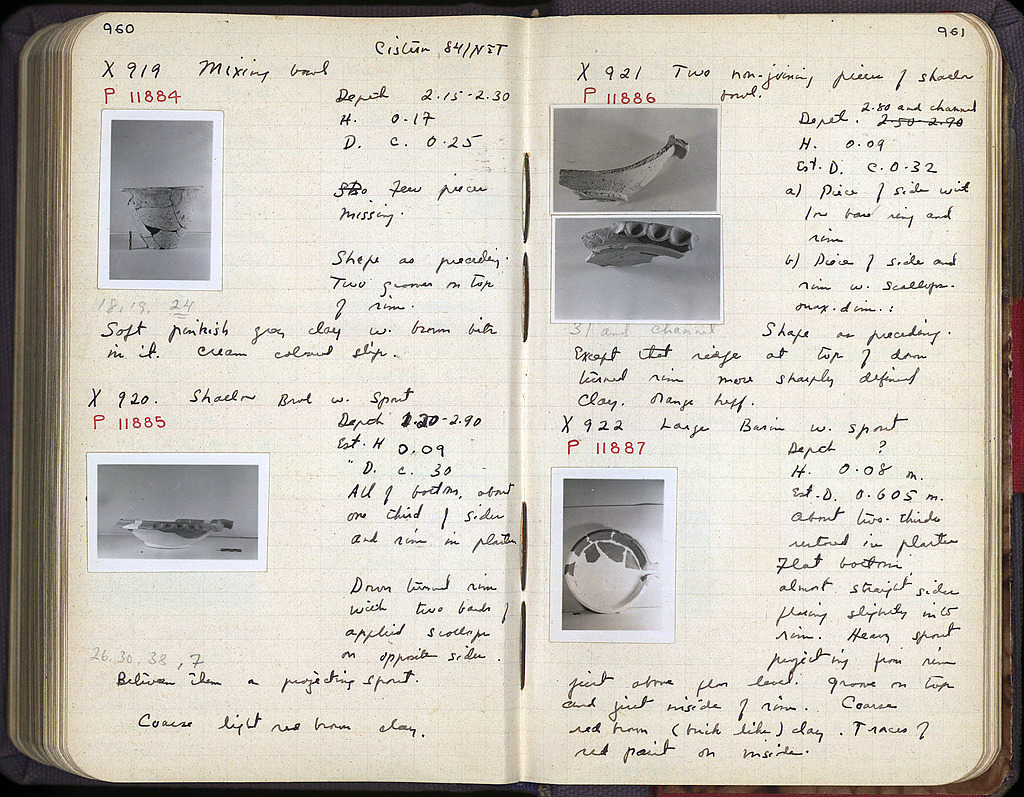 960
Cistern 84/NET
X 919 Mixing bowl
P 11884
Depth 2.15-2.30
H. 0.17
D. c. 0.25
Few pieces
missing.
Shape as preceding.
Two grooves on top
of rim.
18, 19, 24
Soft pinkish gray clay w. brown bits
in it. Cream coloured slip.
X 920. Shallow Bowl w. Spout
P 11885
Depth 2.20-2.90
Est. H 0.09
" D. c. 30
All of bottom, about
one third of sides
and rim in plaster
Down turned rim
with two bands of
applied scallops
on opposite sides.
26, 30, 38, 7
Between them a projecting spout.
Coarse light red brown clay.
961
X 921 Two non-joining pieces of shallow
bowl.
P 11886
2.80 and channel
Depth. 2.50-2.90
H. 0.09
Est. D. c. 0.32
a) Piece of side with
low base ring and
rim
b) Piece of side and
rim w. scallops.
max. dim.:
31 and channel
Shape as preceding.
Except that ridge at top of down
turned rim more sharply defined
Clay. Orange buff.
X 922 Large Basin w. spout
P 11887
Depth ?
H. 0.08 m.
Est. D. 0.605 m.
About two-thirds
restored in plaster
Flat bottom,
almost straight sides
flaring slightly into
rim. Heavy spout
projecting from rim
just above floor level. Groove on top
and just inside of rim. Coarse
red brown (brick like) clay. Traces of
red paint on inside.